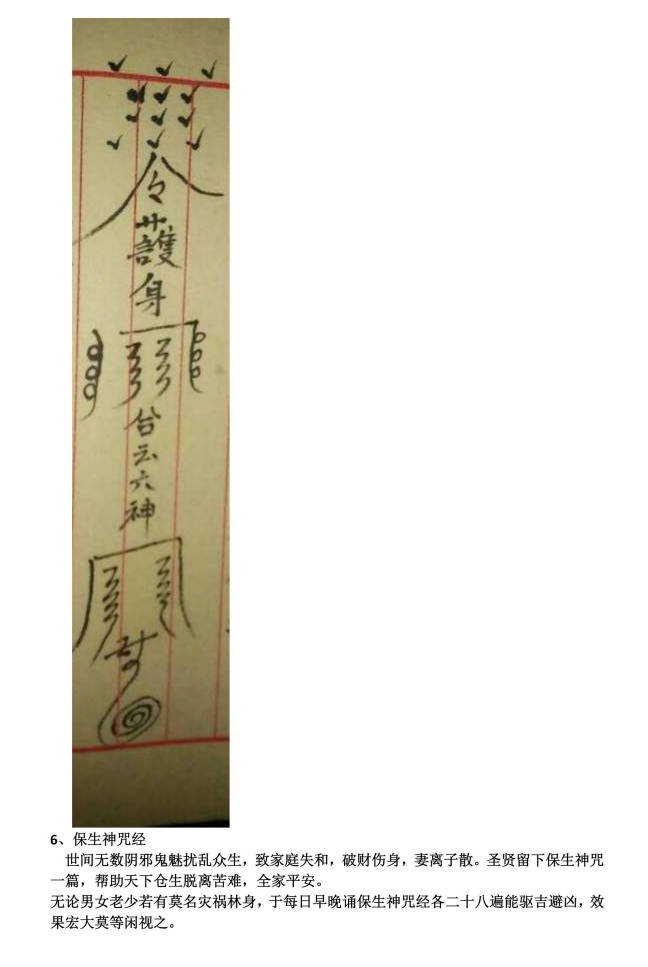 令
護
身
台
云
六
神
6、保生神咒经
世间无数阴邪鬼魅扰乱众生，致家庭失和，破财伤身，妻离子散。圣贤留下保生神咒
一篇，帮助天下仓生脱离苦难，全家平安。
无论男女老少若有莫名灾祸林身，于每日早晚诵保生神咒经各二十八遍能驱吉避凶，效
果宏大莫等闲视之。